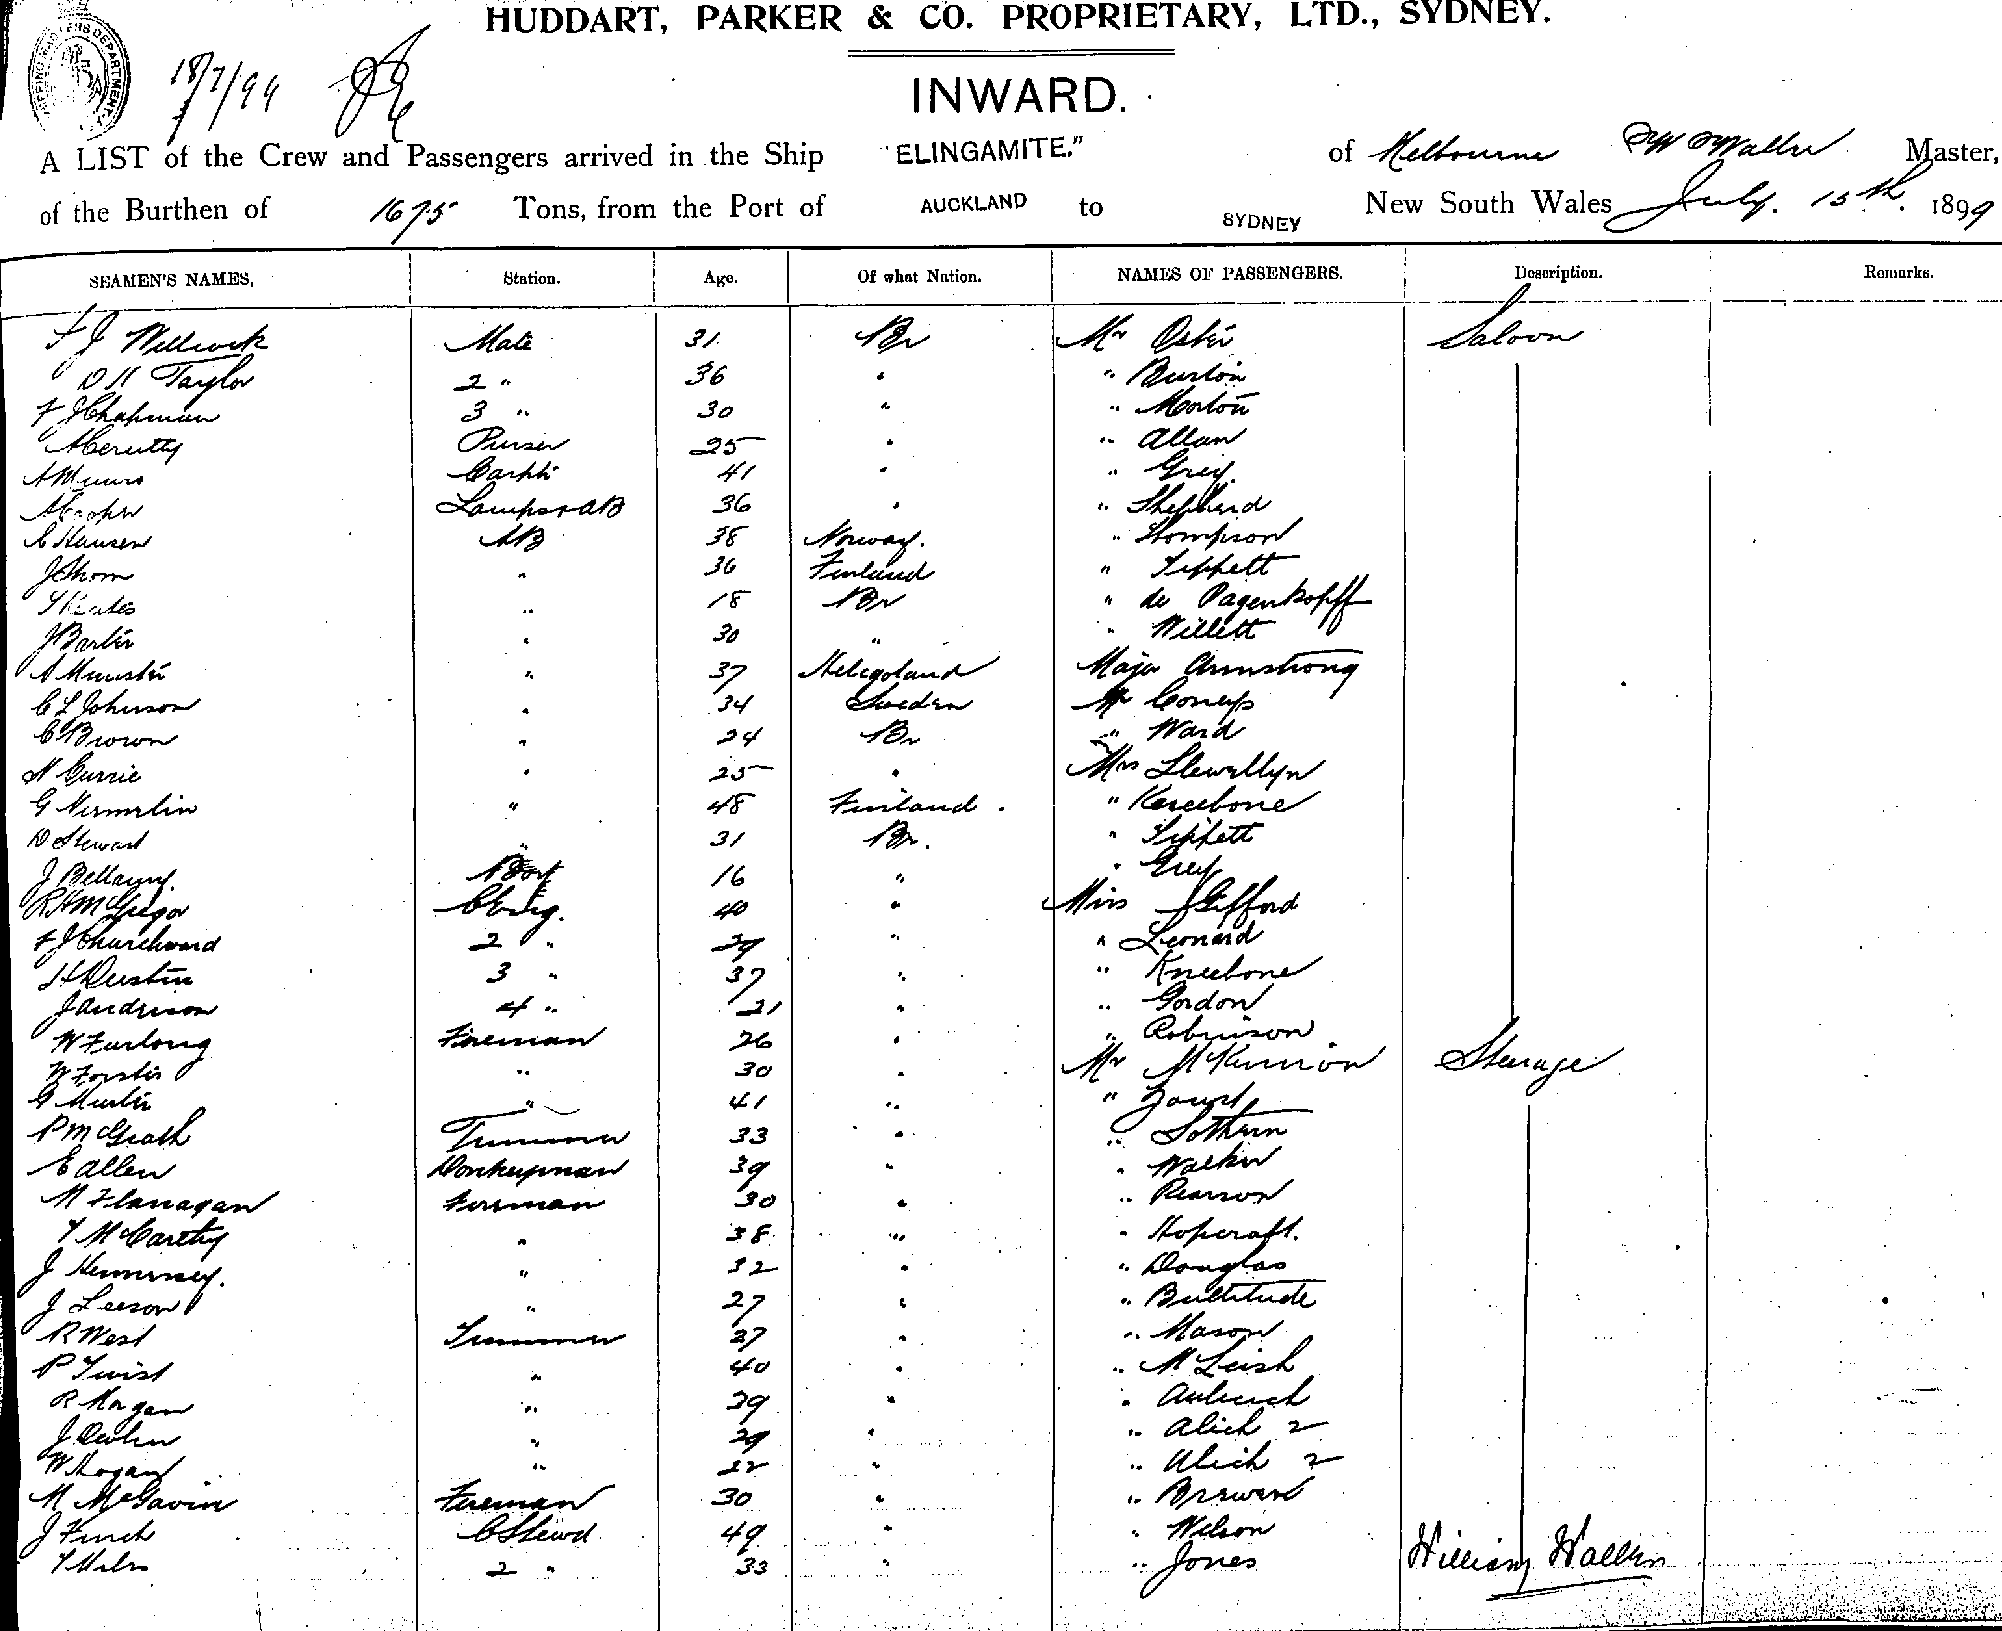 HUDDART, PARKER & CO. PROPRIETARY, LTD., SYDNEY.
18/7/99
INWARD.
A LIST of the Crew and Passengers arrived in the Ship "ELINGAMITE." of Melbourne Master,
of the Burthen of 1675 Tons, from the Port of AUCKLAND to SYDNEY New South Wales July. 15th. 1899
SEAMEN'S NAMES, Station. Age. Of what Nation. NAMES OF PASSENGERS. Description. Remarks.
F J Mate 31 Br Mr Saloon
D H Taylor 2 " 36 " " Burton
F J Chapman 3 " 30 " " Morton
Purser 25 " " Allan
A Munro 41 " " Grey
Lamps & AB 36 " " Shepherd
C Hansen AB 38 Norway. " Thompson
J Thom " 36 Finland " Tippett
" 18 Br " de Pagenkopff
J Barter " 30 " " Willett
A Munster " 37 Heligoland Major Armstrong
C L Johnson " 34 Sweden Mr
C Brown " 24 Br " Ward
N Currie " 25 " Mrs Llewellyn
G " 48 Finland. " Kneebone
D Stewart " 31 Br. " Tippett
J Bellamy. Boy 16 " " Grey
R H McGregor C Eng. 40 " Miss Gifford
F J Churchward 2 " 29 " " Leonard
H Dustin 3 " 37 " " Kneebone
J Anderson 4 " 21 " " Gordon
W Furlong Fireman 26 " " Robinson
W Forster " 30 " Mr McKinnon Steerage
G " 41 " "
P McGrath Trimmer 33 " " Sothern
E Allen Donkeyman 39 " " Walker
M Flanagan Fireman 30 " " Pearson
T McCarthy " 38 " " Hopcraft.
J Hennessey. " 32 " " Douglas
J Leeson " 27 " " Bultitude
R West Trimmer 27 " " Mason
P Twist " 40 " " McLeish
R Morgan " 29 " "
J " 29 " " Alich 2
W Hogan " 22 " " Alich 2
M McGavin Fireman 30 " "
J Finch C Stewd 49 " " Wilson
2 " 33 " " Jones William Waller